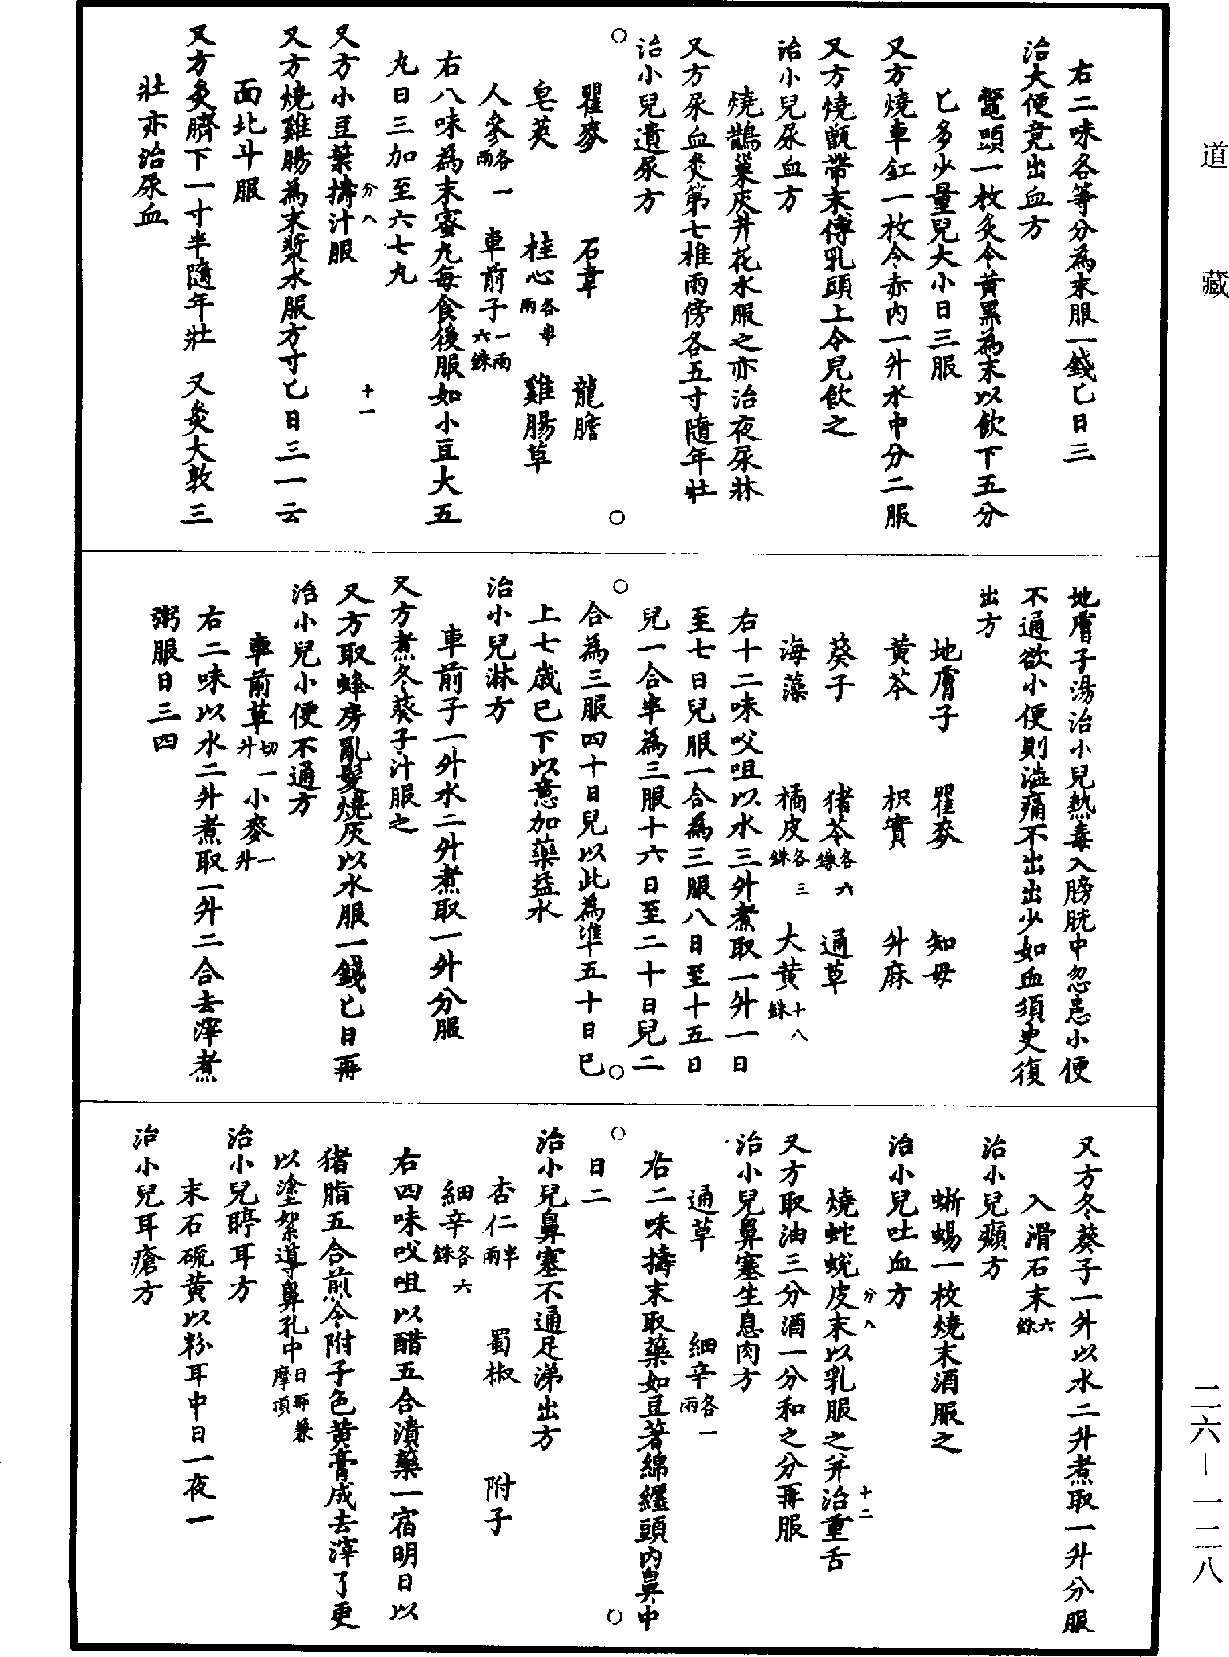 道藏
右二味各等分為末服一錢匕日三
治大便竟出血方
鼈頭一枚炙令黃黑為末以飲下五分
匕多少量兒大小日三服
又方燒車釭一枚令赤內一升水中分二服
又方燒甑帶末傅乳頭上令兒飲之
治小兒尿血方
燒鵲巢灰井花水服之亦治夜尿牀
又方尿血灸第七椎兩傍各五寸隨年壯
治小兒遺尿方
瞿麥 石韋 龍膽
皂莢 桂心各半兩 雞腸草
人參各一兩 車前子一兩六銖
右八味為末蜜丸每食後服如小豆大五
丸日三加至六七丸
又方小豆葉擣汁服
又方燒雞腸為末漿水服方寸匕日三一云
面北斗服
又方灸臍下一寸半隨年壯 又灸大敦三
壯亦治尿血
分八 十一
地膚子湯治小兒熱毒入膀胱中忽患小便
不通欲小便則澁痛不出出少如血須臾復
出方
地膚子 瞿麥 知母
黃芩 枳實 升麻
葵子 猪苓各六銖 通草
海藻 橘皮各三銖 大黃十八銖
右十二味㕮咀以水三升煮取一升一日
至七日兒服一合為三服八日至十五日
兒一合半為三服十六日至二十日兒二
合為三服四十日兒以此為準五十日已
上七歲已下以意加藥益水
治小兒淋方
車前子一升水二升煮取一升分服
又方煮冬葵子汁服之
又方取蜂房亂髮燒灰以水服一錢匕日再
治小兒小便不通方
車前草切一升 小麥一升
右二味以水二升煮取一升二合去滓煮
粥服日三四
又方冬葵子一升以水二升煮取一升分服
入滑石末六銖
治小兒㿗方
蜥蜴一枚燒末酒服之
治小兒吐血方
燒蛇蛻皮末以乳服之并治重舌
又方取油三分酒一分和之分再服
治小兒鼻塞生息肉方
通草 細辛各一兩
右二味擣末取藥如豆著綿纏頭內鼻中
日二
治小兒鼻塞不通涕出方
杏仁半兩 蜀椒 附子
細辛各六銖
右四味㕮咀以醋五合漬藥一宿明日以
猪脂五合煎令附子色黃膏成去滓了更
以塗絮導鼻孔中日再兼摩頂
治小兒聤耳方
末石硫黃以粉耳中日一夜一
治小兒耳瘡方
分八 十二
二六—一二八